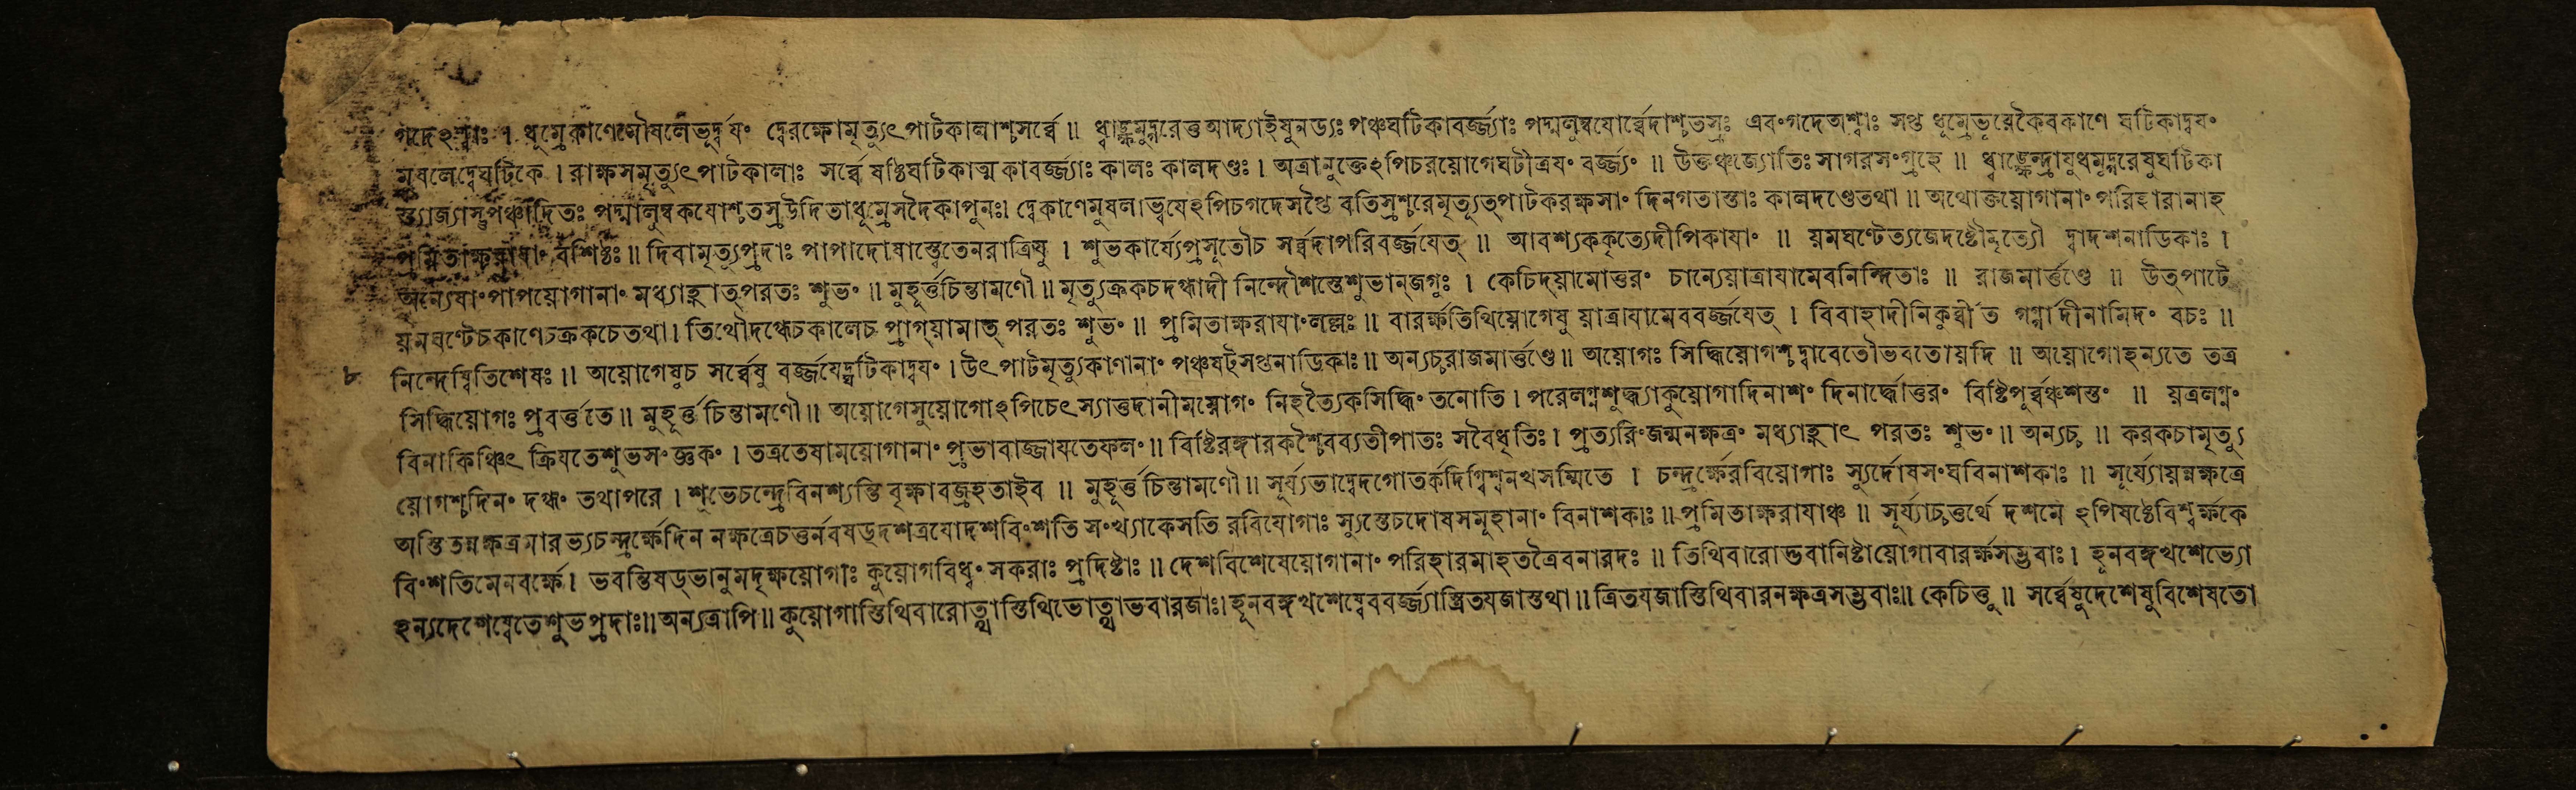 গদেঽশ্বাঃ । ধূম্রেকাণেমৌষলেভূর্দ্বযং দ্বেরক্ষোমৃত্যুৎপাটকালাশ্চসর্ব্বে ॥ ধ্বাঙ্ক্ষমুদ্গরেত্তআদ্যাইষুনড্যঃ পঞ্চঘটিকাবর্জ্জ্যাঃ পদ্মলুম্বযোর্ব্বেদাশ্চতস্রঃ এবংগদেঅশ্বাঃ সপ্ত ধূম্রেভূরেকৈবকাণে ঘটিকাদ্বযং
মুষলেদ্বেঘটিকে । রাক্ষসমৃত্যুৎপাটকালাঃ সর্ব্বে ষষ্টিঘটিকাত্মকাবর্জ্জ্যাঃ কালঃ কালদণ্ডঃ । অত্রানুক্তেঽপিচরয়োগেঘটীত্রযং বর্জ্জ্যং ॥ উক্তঞ্চজ্যোতিঃ সাগরসংগ্রহে ॥ ধ্বাঙ্ক্ষেন্দ্রাযুধমুদ্গরেষুঘটিকা
স্ত্যাজ্যাস্তুপঞ্চাদিতঃ পদ্মালুম্বকযোশ্চতস্রউদিতাধূম্রেসদৈকাপুনঃ। দ্বেকাণেমুষলাভ্বযেঽপিচগদেসপ্তৈ বতিস্রশ্চরেমৃত্যূত্পাটকরক্ষসাং দিনগতাস্তাঃ কালদণ্ডেতথা ॥ অথোক্তয়োগানাং পরিহারানাহ
প্রমিতাক্ষরাযাং বশিষ্ঠঃ ॥ দিবামৃত্যুপ্রদাঃ পাপাদোষাস্ত্বেতেনরাত্রিষু । শুভকার্য্যেপ্রসূতৌচ সর্ব্বদাপরিবর্জ্জযেত্ ॥ আবশ্যককৃত্যেদীপিকাযাং ॥ য়মঘণ্টেত্যজেদষ্টৌমৃত্যৌ দ্বাদশনাডিকাঃ ।
অন্যেষাংপাপয়োগানাং মধ্যাহ্নাত্পরতঃ শুভং ॥ মুহূর্ত্তচিন্তামণৌ ॥ মৃত্যুক্রকচদগ্ধাদী নিন্দৌশস্তেশুভান্জগুঃ । কেচিদ্য়ামোত্তরং চান্যেয়াত্রাযামেবনিন্দিতাঃ ॥ রাজমার্ত্তণ্ডে ॥ উত্পাটে
য়মঘণ্টেচকাণেচক্রকচেতথা। তিথৌদগ্ধেচকালেচ প্রাগ্য়ামাত্ পরতঃ শুভং ॥ প্রমিতাক্ষরাযাংলল্লঃ ॥ বারর্ক্ষতিথিয়োগেষু য়াত্রাযামেববর্জ্জযেত্ । বিবাহাদীনিকুর্ব্বীত গর্গ্গাদীনামিদং বচঃ ॥
নিন্দেম্বিতিশেষঃ ॥ অয়োগেষুচ সর্ব্বেষু বর্জ্জযেদ্ঘটিকাদ্বযং । উৎপাটমৃত্যুকাণানাং পঞ্চষট্সপ্তনাডিকাঃ ॥ অন্যচ্চরাজমার্ত্তণ্ডে ॥ অয়োগঃ সিদ্ধিয়োগশ্চদ্বাবেতৌভবতোয়দি ॥ অয়োগোহন্যতে তত্র
সিদ্ধিয়োগঃ প্রবর্ত্ততে ॥ মুহূর্ত্তচিন্তামণৌ ॥ অয়োগেসুয়োগোঽপিচেৎ স্যাত্তদানীময়োগং নিহত্যৈকসিদ্ধিং তনোতি । পরেলগ্নশুদ্ধ্যাকুয়োগাদিনাশং দিনার্দ্ধোত্তরং বিষ্টিপূর্ব্বঞ্চশস্তং ॥ য়ত্রলগ্নং
বিনাকিঞ্চিৎ ক্রিযতেশুভসংজ্ঞকং । তত্রতেষাময়োগানাং প্রভাবাজ্জাযতেফলং ॥ বিষ্টিরঙ্গারকশ্চৈবব্যতীপাতঃ সবৈধৃতিঃ । প্রত্যরিংজন্মনক্ষত্রং মধ্যাহ্নাৎ পরতঃ শুভং ॥ অন্যচ্চ ॥ করকচামৃত্যু
য়োগশ্চদিনং দগ্ধং তথাপরে । শুভেচন্দ্রেবিনশ্যন্তি বৃক্ষাবজ্রহতাইব ॥ মুহূর্ত্তচিন্তামণৌ ॥ সূর্য্যভাদ্বেদগোতর্কদিগ্বিশ্বনখসম্মিতে । চন্দ্রর্ক্ষেরবিয়োগাঃ স্যুর্দোষসংঘবিনাশকাঃ ॥ সূর্য্যোয়ন্নক্ষত্রে
অস্তিতন্নক্ষত্রমারভ্যচন্দ্রর্ক্ষেদিন নক্ষত্রেচত্তুর্নবষড্দশত্রযোদশবিংশতি সংখ্যাকেসতি রবিযোগাঃ স্যুস্তেচদোষসমূহানাং বিনাশকাঃ ॥ প্রমিতাক্ষরাযাঞ্চ ॥ সূর্য্যাচ্চত্তুর্থে দশমে ঽপিষষ্ঠেবিশ্বর্ক্ষকে
বিংশতিমেনবর্ক্ষে। ভবন্তিষড্ভানুমদৃক্ষয়োগাঃ কুয়োগবিধ্বংসকরাঃ প্রদিষ্টাঃ ॥ দেশবিশেষেয়োগানাং পরিহারমাহতত্রৈবনারদঃ ॥ তিথিবারোদ্ভবানিষ্টায়োগাবারর্ক্ষসম্ভবাঃ । হূনবঙ্গখশেভ্যো
ঽন্যদেশেষ্বেতেশুভপ্রদাঃ॥ অন্যত্রাপি ॥ কুয়োগাস্তিথিবারোত্থাস্তিথিভোত্থাভবারজাঃ। হূনবঙ্গখশেষ্বেববর্জ্জ্যাস্ত্রিতযজাস্তথা ॥ ত্রিতযজাস্তিথিবারনক্ষত্রসম্ভবাঃ॥ কেচিত্তু ॥ সর্ব্বেষুদেশেষুবিশেষতো
৮